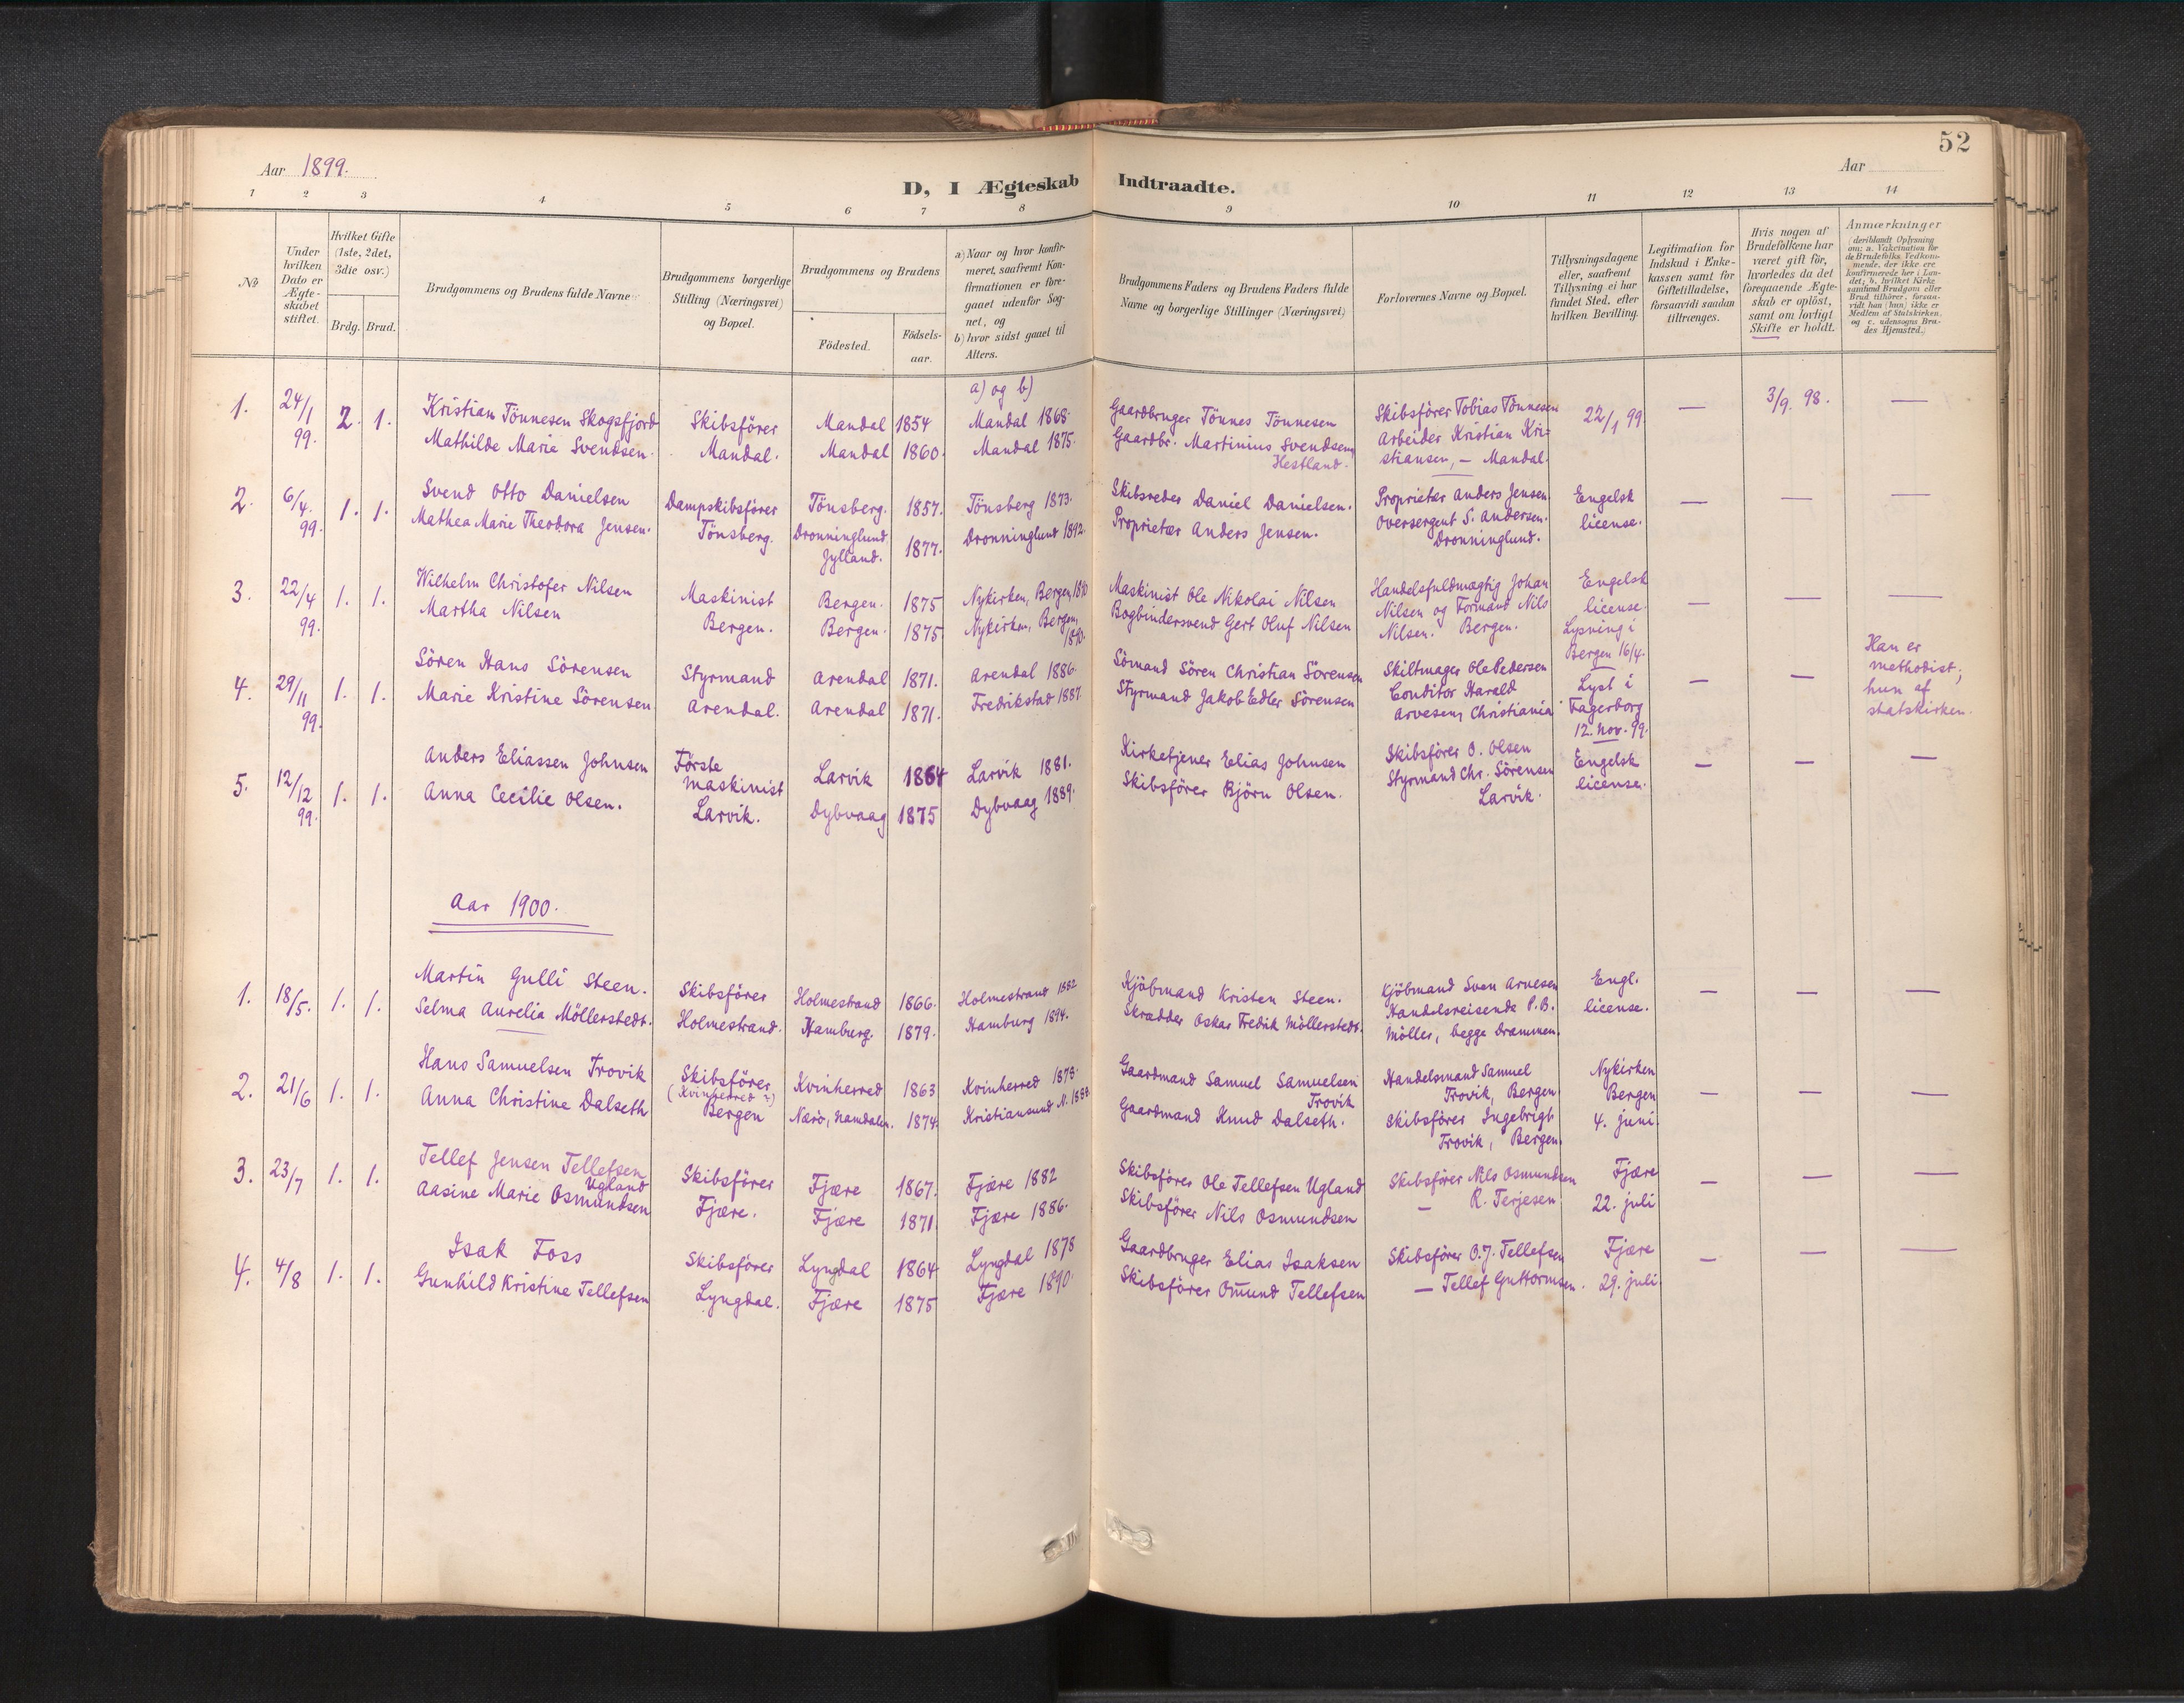 52
Aar 1899.
Aar
D, I Ægteskab Indtraadte.
1 2 3 4 5 6 7 8 9 10 11 12 13 14
No
Under hvilken Dato er Ægteskabet stiftet.
Hvilket Gifte (1ste, 2det, 3die osv.)
Brdg. Brud.
Brudgommens og Brudens fulde Navne
Brudgommens borgerlige Stilling (Næringsvei) og Bopæl.
Brudgommens og Brudens
Födested.
Födselsaar.
a) Naar og hvor konfirmeret, saafremt Konfirmationen er foregaaet udenfor Sognet, og
b) hvor sidst gaaet til Alters.
Brudgommens Faders og Brudens Faders fulde Navne og borgerlige Stillinger (Næringsvei)
Forlovernes Navne og Bopæl.
Tillysningsdagene eller, saafremt Tillysning ei har fundet Sted, efter hvilken Bevilling.
Legitimation for Indskud i Enkekassen samt for Giftetilladelse, forsaavidt saadan tiltrænges.
Hvis nogen af Brudefolkene har været gift för, hvorledes da det foregaaende Ægteskab er oplöst, samt om lovligt Skifte er holdt.
Anmærkninger
(deriblandt Oplysning om: a. Vakcination for de Brudefolks Vedkommende, der ikke ere konfirmerede her i Landet; b. hvilket Kirkesamfund Brudgom eller Brud tilhörer, forsaavidt han (hun) ikke er Medlem af Statskirken, og c. udensogns Brudes Hjemsted.)
a) og b)
1. 24/1 99. 2. 1. Kristian Tönnesen Skogsfjord Skibsförer Mandal 1854 Mandal 1868. Gaardbruger Tönnes Tönnesen Skibsförer Tobias Tönnesen 22/1 99 — 3/9. 98. —
Mathilde Marie Svendsen. Mandal. Mandal 1860. Mandal 1875. Gaardbr. Martinius Svendsen, Hestland. Arbeider Kristian Kristiansen, — Mandal.
2. 6/4. 99. 1. 1. Svend Otto Danielsen Dampskibsförer Tönsberg. 1857. Tönsberg 1873. Skibsreder Daniel Danielsen. Proprietær Anders Jensen. Engelsk license. — — —
Mathea Marie Theodora Jensen. Tönsberg. Dronninglund Jylland. 1877. Dronninglund 1892. Proprietær Anders Jensen. Oversergent S. Andersen. Dronninglund.
3. 22/4 99. 1. 1. Wilhelm Christofer Nilsen Maskinist Bergen. 1875 Nykirken, Bergen, 1890 Maskinist Ole Nikolai Nilsen Handelsfuldmægtig Johan Nilsen og Formand Nils Nilsen. Bergen. Engelsk license. Lysning i Bergen 16/4. — — —
Martha Nilsen Bergen. Bergen. 1875 Nykirken, Bergen, 1890. Bogbindersvend Gert Oluf Nilsen
4. 29/11 99. 1. 1. Sören Hans Sörensen Styrmand Arendal 1871. Arendal 1886. Sömand Sören Christian Sörensen Skiltmager Ole Pedersen Lyst i Fagerborg 12. nov. 99. — — Han er methodist; hun af statskirken.
Marie Kristine Sörensen Arendal. Arendal 1871. Fredrikstad 1887. Styrmand Jakob Edler Sörensen Conditor Harald Arvesen, Christiania
5. 12/12 99. 1. 1. Anders Eliassen Johnsen Förste maskinist Larvik 1864 Larvik 1881. Kirketjener Elias Johnsen Skibsförer O. Olsen Engelsk license. — — —
Anna Cecilie Olsen. Larvik. Dybvaag 1875 Dybvaag 1889. Skibsförer Björn Olsen. Styrmand Chr. Sörensen Larvik.
Aar 1900.
1. 18/5. 1. 1. Martin Gulli Steen. Skibsförer Holmestrand 1866. Holmestrand 1882 Kjöbmand Kristen Steen. Kjöbmand Sven Arvesen Engl. license. — — —
Selma Aurelia Möllerstedt. Holmestrand. Hamburg. 1879. Hamburg 1894. Skrædder Oskar Fredik Möllerstedt. Handelsreisende P.B. Möller, begge Drammen.
2. 21/6 1. 1. Hans Samuelsen Trovik Skibsförer (Kvinherred?) Kvinherred 1863 Kvinherred 1878. Gaardmand Samuel Samuelsen Trovik Handelsmand Samuel Trovik, Bergen. Nykirken Bergen 4. juni. — — —
Anna Christine Dalseth Bergen Nærö, Namdalen. 1874. Kristiansund N. 1888. Gaardmand Knud Dalseth. Skibsförer Ingebrigt Trovik, Bergen.
3. 23/7 1. 1. Tellef Jensen Tellefsen Ugland Skibsförer Fjære 1867. Fjære 1882 Skibsförer Ole Tellefsen Ugland Skibsförer Nils Osmundsen Fjære 22. juli — — —
Aasine Marie Osmundsen Fjære. Fjære 1871. Fjære 1886. Skibsförer Nils Osmundsen — R. Terjesen.
4. 4/8 1. 1. Isak Foss Skibsförer Lyngdal 1864 Lyngdal 1878 Gaardbruger Elias Isaksen Skibsförer O.J. Tellefsen Fjære 29. juli — — —
Gunhild Kristine Tellefsen Lyngdal. Fjære 1875 Fjære 1890. Skibsförer Omund Tellefsen — Tellef Guttormsen.